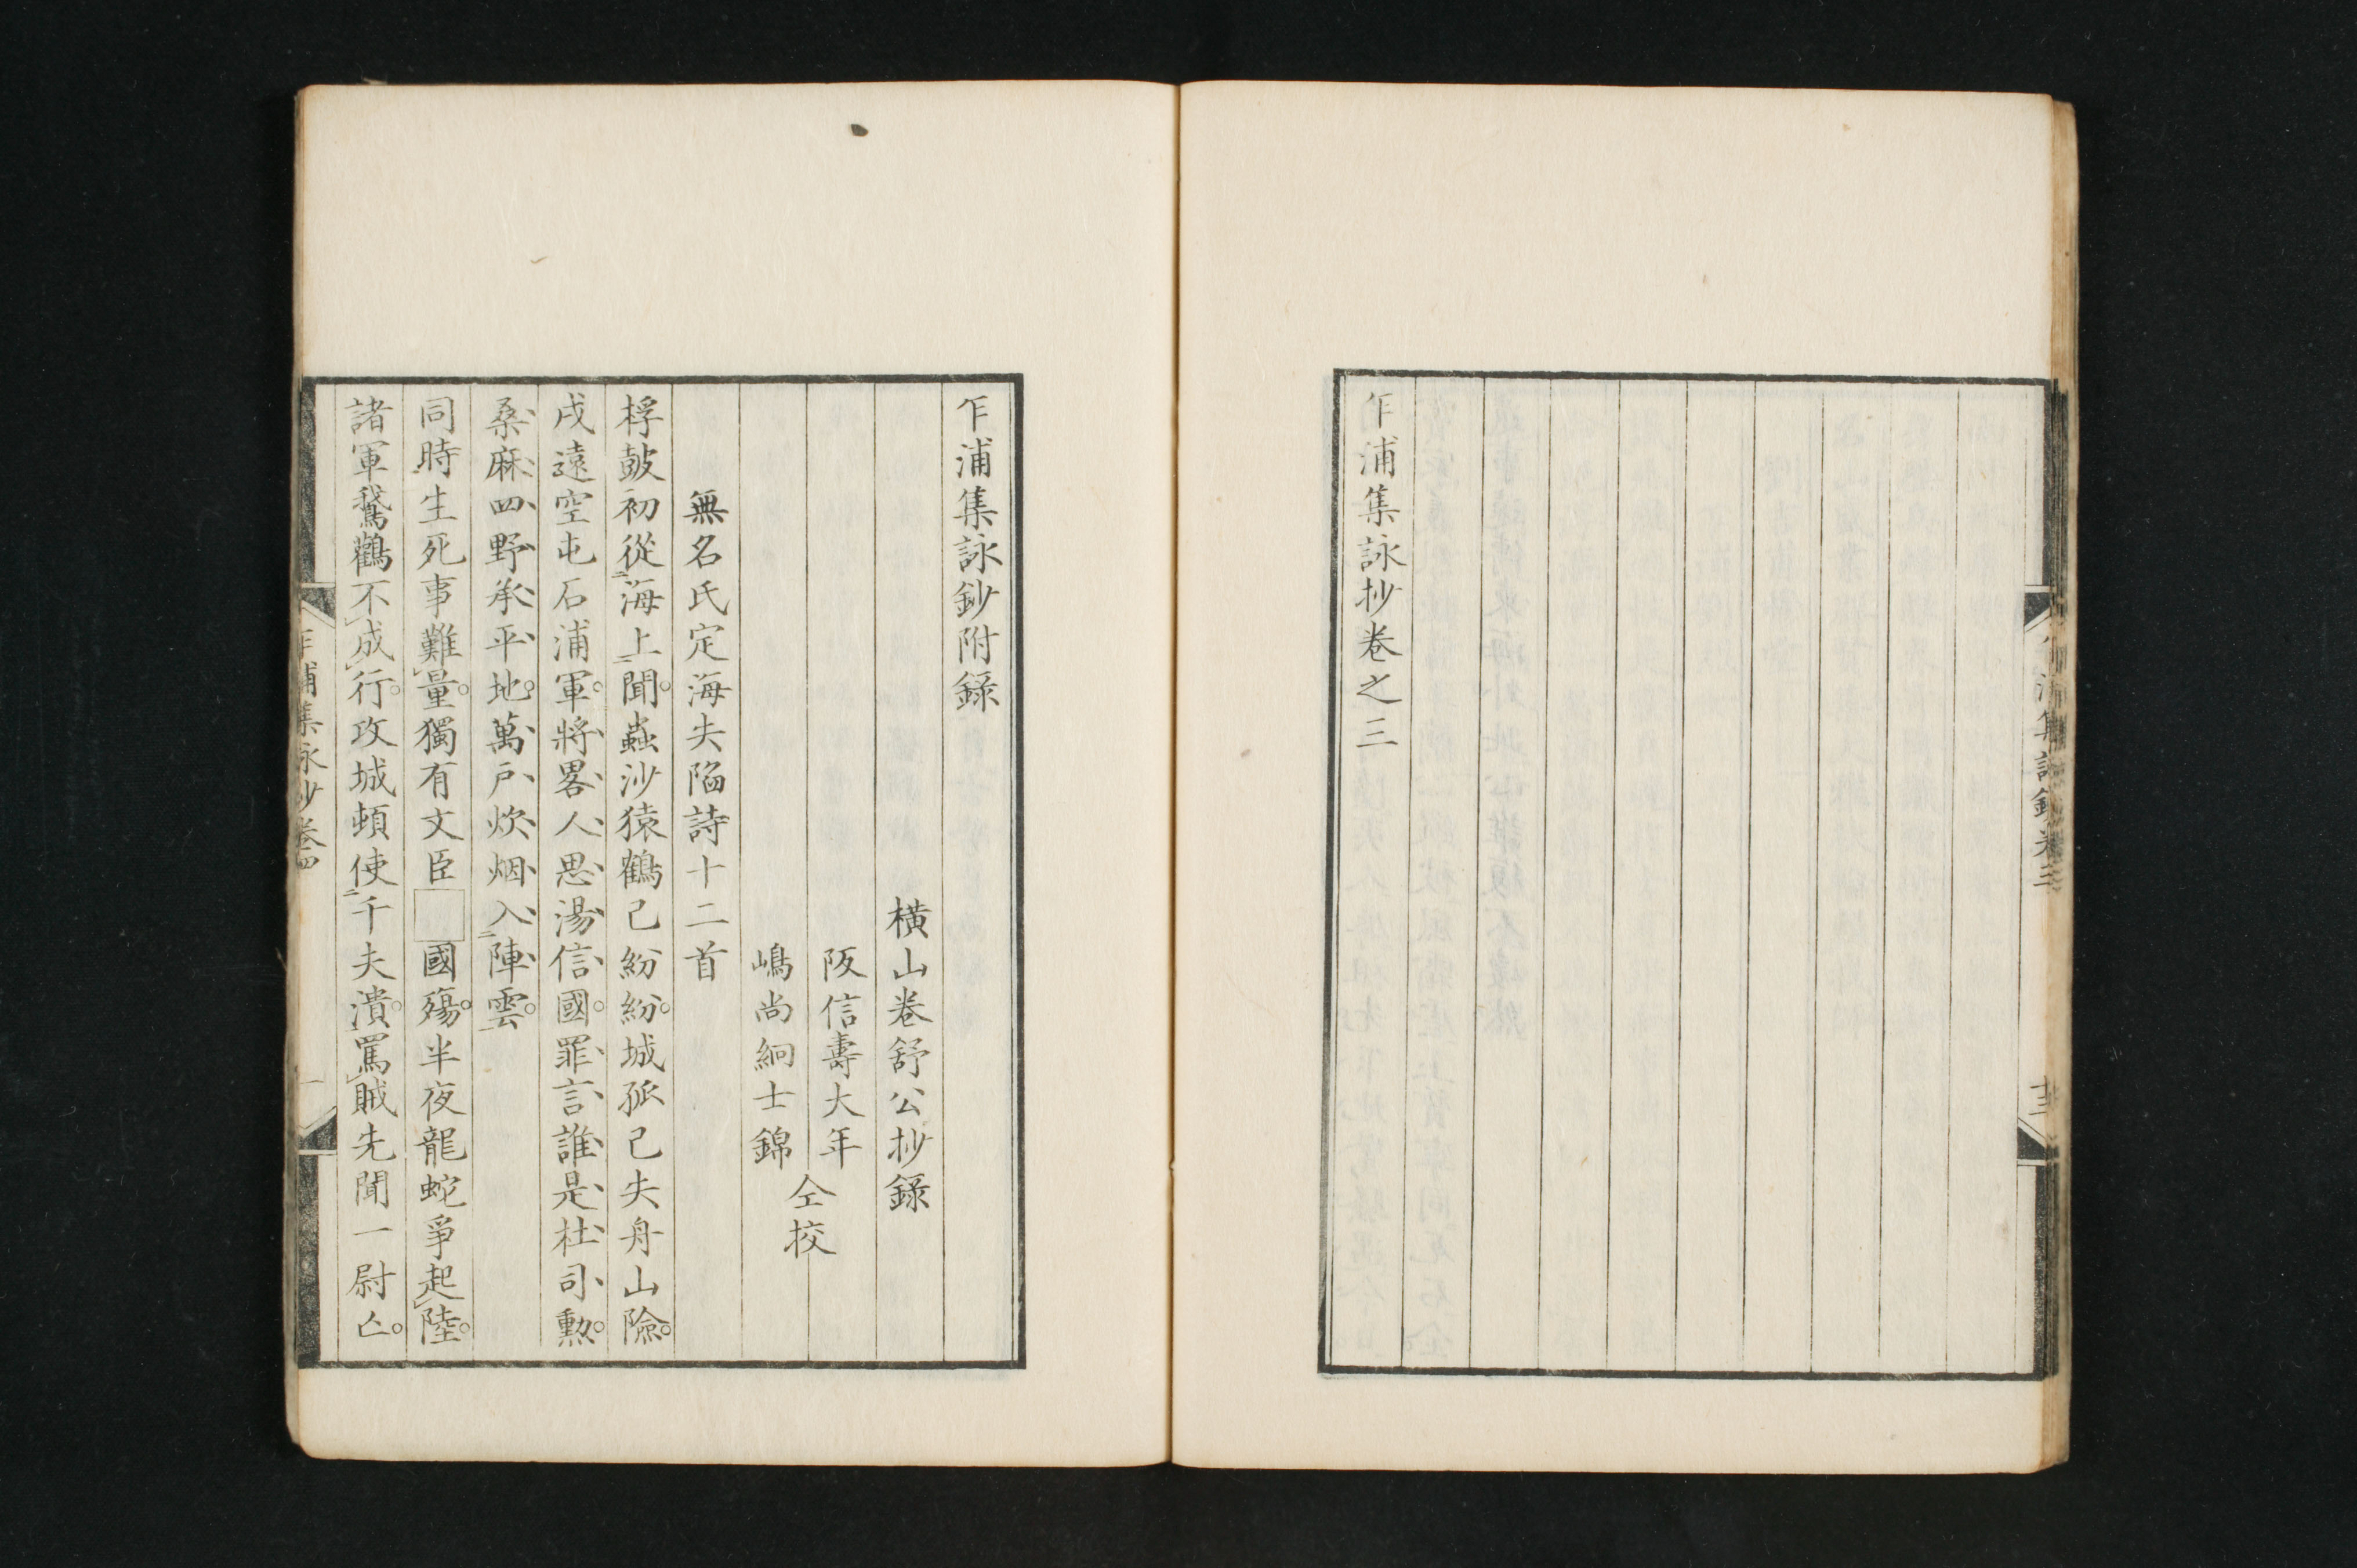 乍浦集詠抄卷之三
乍浦集詠鈔附錄
橫山卷舒公抄錄
阪信壽大年
嶋尚絅士錦
仝挍
無名氏定海失陷詩十二首
桴皷初從海上聞。蟲沙猿鶴已紛紛。城孤已失舟山險。
戍遠空屯石浦軍。將畧人思湯信國。罪言誰是杜司勲。
桑麻四野承平地。萬戶炊烟入陣雲。
同時生死事難量。獨有文臣□國殤。半夜龍蛇爭起陸。
諸軍鵞鸛不成行。攻城頓使千夫潰。罵賊先聞一尉亾。
乍浦集詠鈔卷四
一